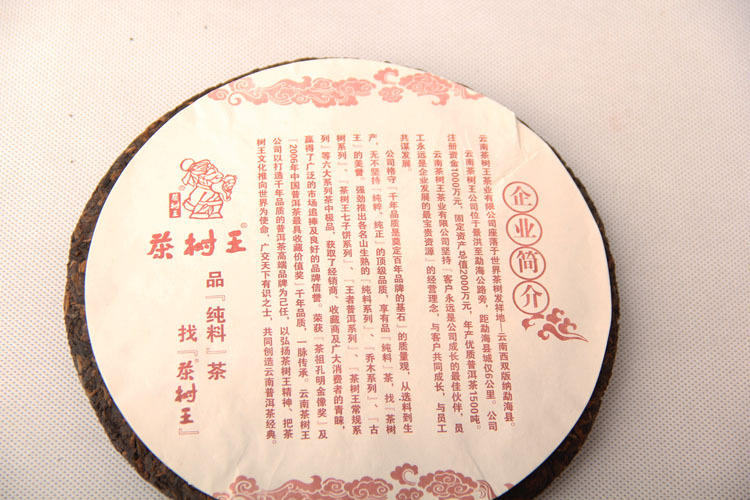 企业简介
云南茶树王茶业有限公司座落于世界茶树发祥地—云南西双版纳勐海县。
云南茶树王公司位于景洪至勐海公路旁，距勐海县城仅6公里。公司
注册资金1000万元，固定资产总值2000万元，年产优质普洱茶1500吨。
云南茶树王茶业有限公司坚持『客户永远是公司成长的最佳伙伴，员
工永远是企业发展的最宝贵资源』的经营理念，与客户共同成长，与员工
共谋发展。
公司格守『千年品质是奠定百年品牌的基石』的质量观，从选料到生
产，无不坚持『纯粹、纯正』的顶级品质，享有品『纯料』茶，找『茶树
王』的美誉。强劲推出各名山生熟的『纯料系列』、『乔木系列』、『古
树系列』、『茶树王七子饼系列』、『王者普洱系列』、『茶树王常规系
列』等六大系列茶中极品，获取了经销商、收藏商及广大消费者的青睐，
赢得了广泛的市场追捧及良好的品牌信誉。荣获『茶祖孔明金像奖』及
『2006年中国普洱茶最具收藏价值奖』千年品质，一脉传承。云南茶树王
公司以打造千年品质的普洱茶高端品牌为己任，以弘扬茶树王精神、把茶
树王文化推向世界为使命，广交天下有识之士，共同创造云南普洱茶经典。
茶树王
茶树王
品『纯料』茶
找『茶树王』